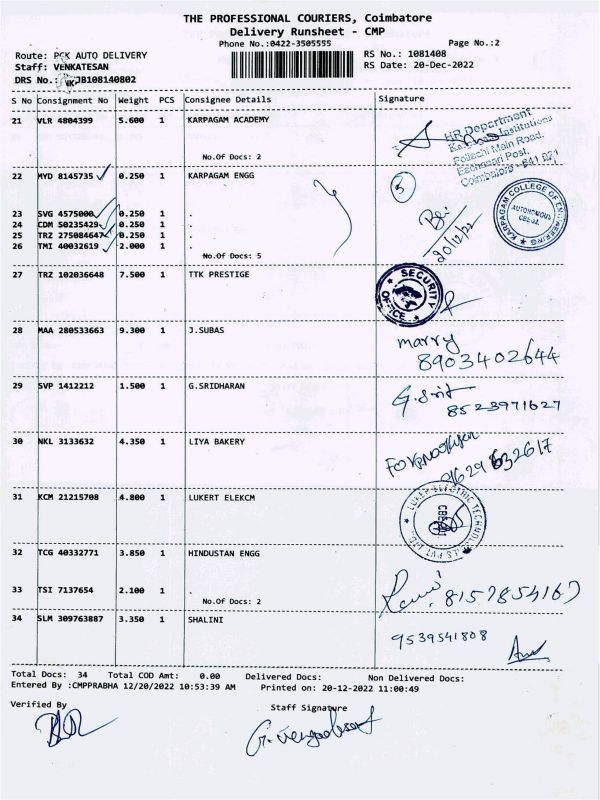 THE PROFESSIONAL COURIERS, Coimbatore
Delivery Runsheet - CMP
Phone No.:0422-3505555
Page No.:2
Route: PCK AUTO DELIVERY
Staff: VENKATESAN
DRS No.: JB108140802
RS No.: 1081408
RS Date: 20-Dec-2022
S No Consignment No Weight PCS Consignee Details Signature
21 VLR 4804399 5.600 1 KARPAGAM ACADEMY
HR Department
Institutions
Pollachi Main Road,
Eachanari Post,
Coimbatore - 641 021
No.Of Docs: 2
22 MYD 8145735 0.250 1 KARPAGAM ENGG
5
KARPAGAM COLLEGE OF ENGINEERING
AUTONOMOUS
CBE-32
23 SVG 4575000 0.250 1 .
24 CDM 50235429 0.250 1 .
25 TRZ 275084647 0.250 1 .
26 TMI 40032619 2.000 1 .
20/12/22
No.Of Docs: 5
27 TRZ 102036648 7.500 1 TTK PRESTIGE
SECURITY OFFICE
28 MAA 280533663 9.300 1 J.SUBAS
marry
8903402644
29 SVP 1412212 1.500 1 G.SRIDHARAN
8523971627
30 NKL 3133632 4.350 1 LIYA BAKERY
31 KCM 21215708 4.800 1 LUKERT ELEKCM
LUKER ELECTRIC TECHNOLOGIES PVT LTD
32 TCG 40332771 3.850 1 HINDUSTAN ENGG
33 TSI 7137654 2.100 1 .
8157854167
No.Of Docs: 2
34 SLM 309763887 3.350 1 SHALINI
9539541808
Total Docs: 34 Total COD Amt: 0.00 Delivered Docs: Non Delivered Docs:
Entered By :CMPPRABHA 12/20/2022 10:53:39 AM Printed on: 20-12-2022 11:00:49
Verified By
Staff Signature